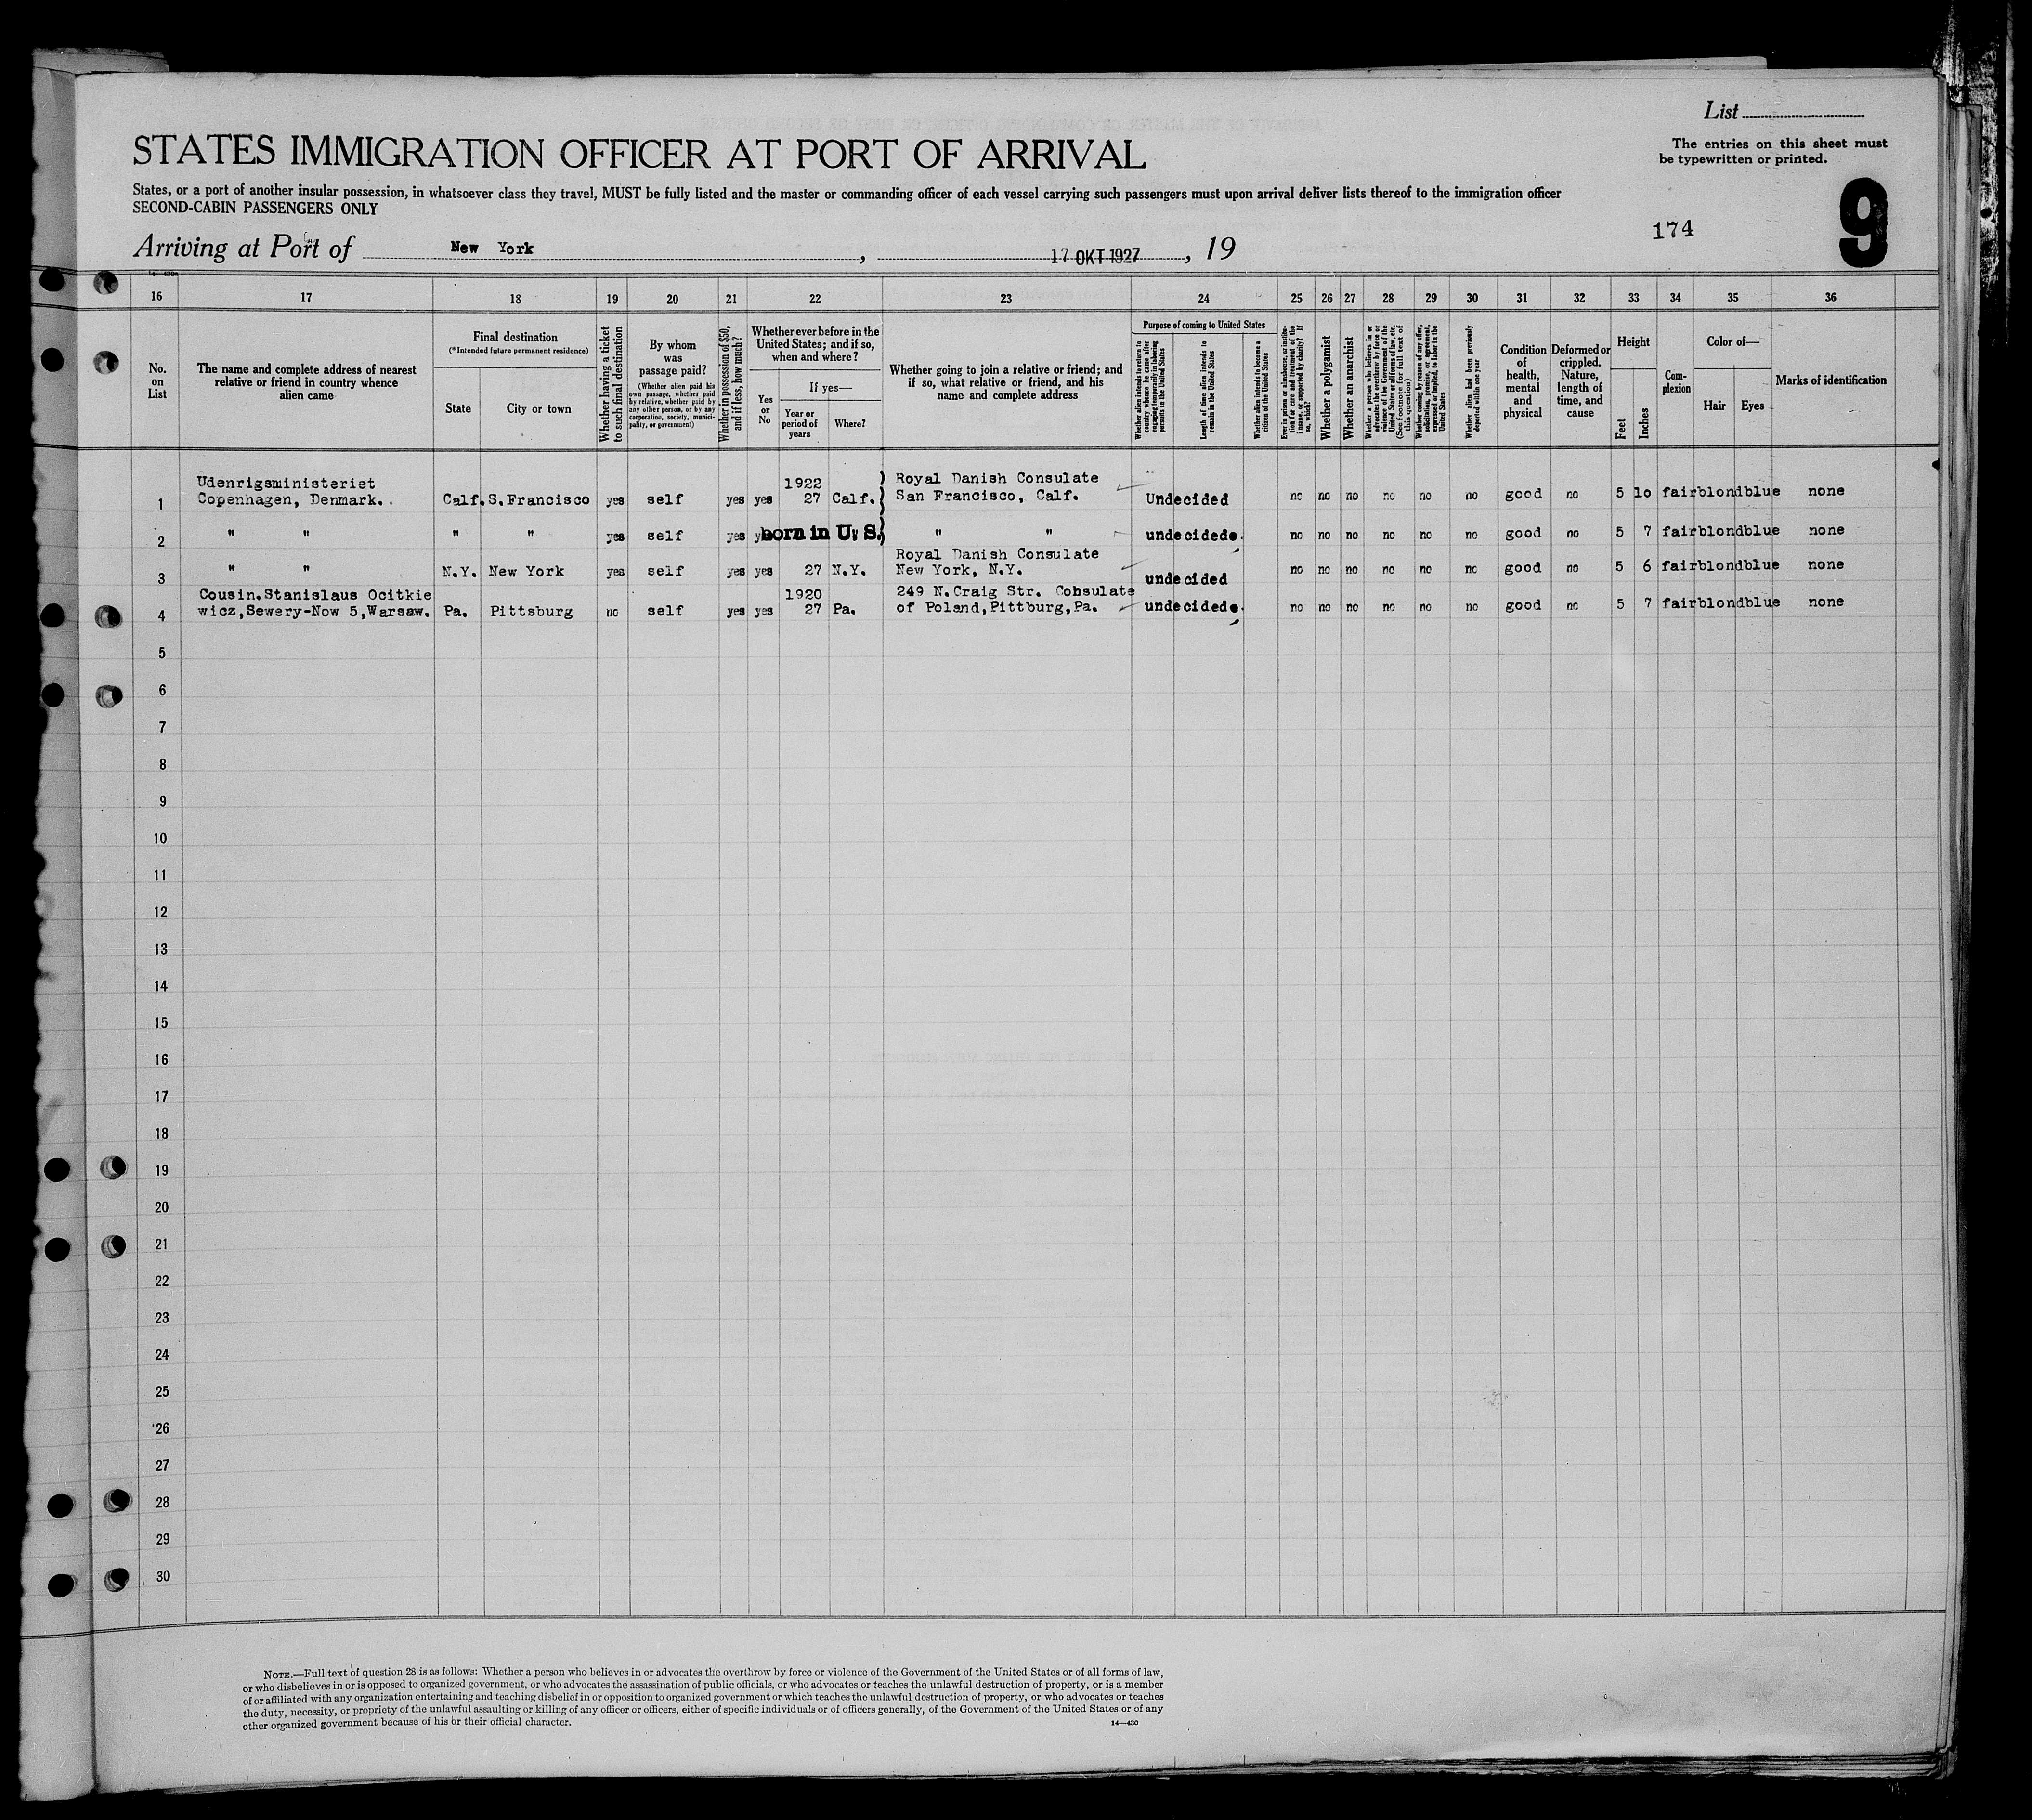 List
The entries on this sheet must
be typewritten or printed.
STATES IMMIGRATION OFFICER AT PORT OF ARRIVAL
States, or a port of another insular possession, in whatsoever class they travel, MUST be fully listed and the master or commanding officer of each vessel carrying such passengers must upon arrival deliver lists thereof to the immigration officer
SECOND-CABIN PASSENGERS ONLY
174
9
Arriving at Port of New York, 17 OKT 1927, 19
16 17 18 19 20 21 22 23 24 25 26 27 28 29 30 31 32 33 34 35 36
No.
on
List
The name and complete address of nearest
relative or friend in country whence
alien came
Final destination
(*Intended future permanent residence)
State
City or town
Whether having a ticket
to such final destination
By whom
was
passage paid?
(Whether alien paid his
own passage, whether paid
by relative, whether paid by
any other person, or by any
corporation, society, munici-
pality, or government)
Whether in possession of $50,
and if less, how much?
Whether ever before in the
United States; and if so,
when and where?
Yes
or
No
If yes—
Year or
period of
years
Where?
Whether going to join a relative or friend; and
if so, what relative or friend, and his
name and complete address
Purpose of coming to United States
Whether alien intends to return to
country whence he came after
engaging temporarily in laboring
pursuits in the United States
Length of time alien intends to
remain in the United States
Whether alien intends to become a
citizen of the United States
Ever in prison or almshouse, or institu-
tion for care and treatment of the
insane, or supported by charity? If
so, which?
Whether a polygamist
Whether an anarchist
Whether a person who believes in or
advocates the overthrow by force or
violence of the Government of the
United States or all forms of law, etc.
(See footnote for full text of
this question)
Whether coming by reason of any offer,
solicitation, promise, or agreement,
expressed or implied, to labor in the
United States
Whether alien had been previously
deported within one year
Condition
of
health,
mental
and
physical
Deformed or
crippled.
Nature,
length of
time, and
cause
Height
Feet
Inches
Com-
plexion
Color of—
Hair
Eyes
Marks of identification
Udenrigsministeriet 1922 Royal Danish Consulate
1 Copenhagen, Denmark. Calf. S.Francisco yes self yes yes 27 Calf. San Francisco, Calf. Undecided no no no no no no good no 5 10 fair blond blue none
2 " " " " yes self yes yes born in U. S. " " undecided. no no no no no no good no 5 7 fair blond blue none
Royal Danish Consulate
3 " " N.Y. New York yes self yes yes 27 N.Y. New York, N.Y. undecided no no no no no no good no 5 6 fair blond blue none
Cousin.Stanislaus Ocitkie 1920 249 N.Craig Str. Consulate
4 wicz,Sewery-Now 5,Warsaw. Pa. Pittsburg no self yes yes 27 Pa. of Poland,Pittburg,Pa. undecided. no no no no no no good no 5 7 fair blond blue none
5
6
7
8
9
10
11
12
13
14
15
16
17
18
19
20
21
22
23
24
25
26
27
28
29
30
NOTE.—Full text of question 28 is as follows: Whether a person who believes in or advocates the overthrow by force or violence of the Government of the United States or of all forms of law,
or who disbelieves in or is opposed to organized government, or who advocates the assassination of public officials, or who advocates or teaches the unlawful destruction of property, or is a member
of or affiliated with any organization entertaining and teaching disbelief in or opposition to organized government or which teaches the unlawful destruction of property, or who advocates or teaches
the duty, necessity, or propriety of the unlawful assaulting or killing of any officer or officers, either of specific individuals or of officers generally, of the Government of the United States or of any
other organized government because of his or their official character.
14—430